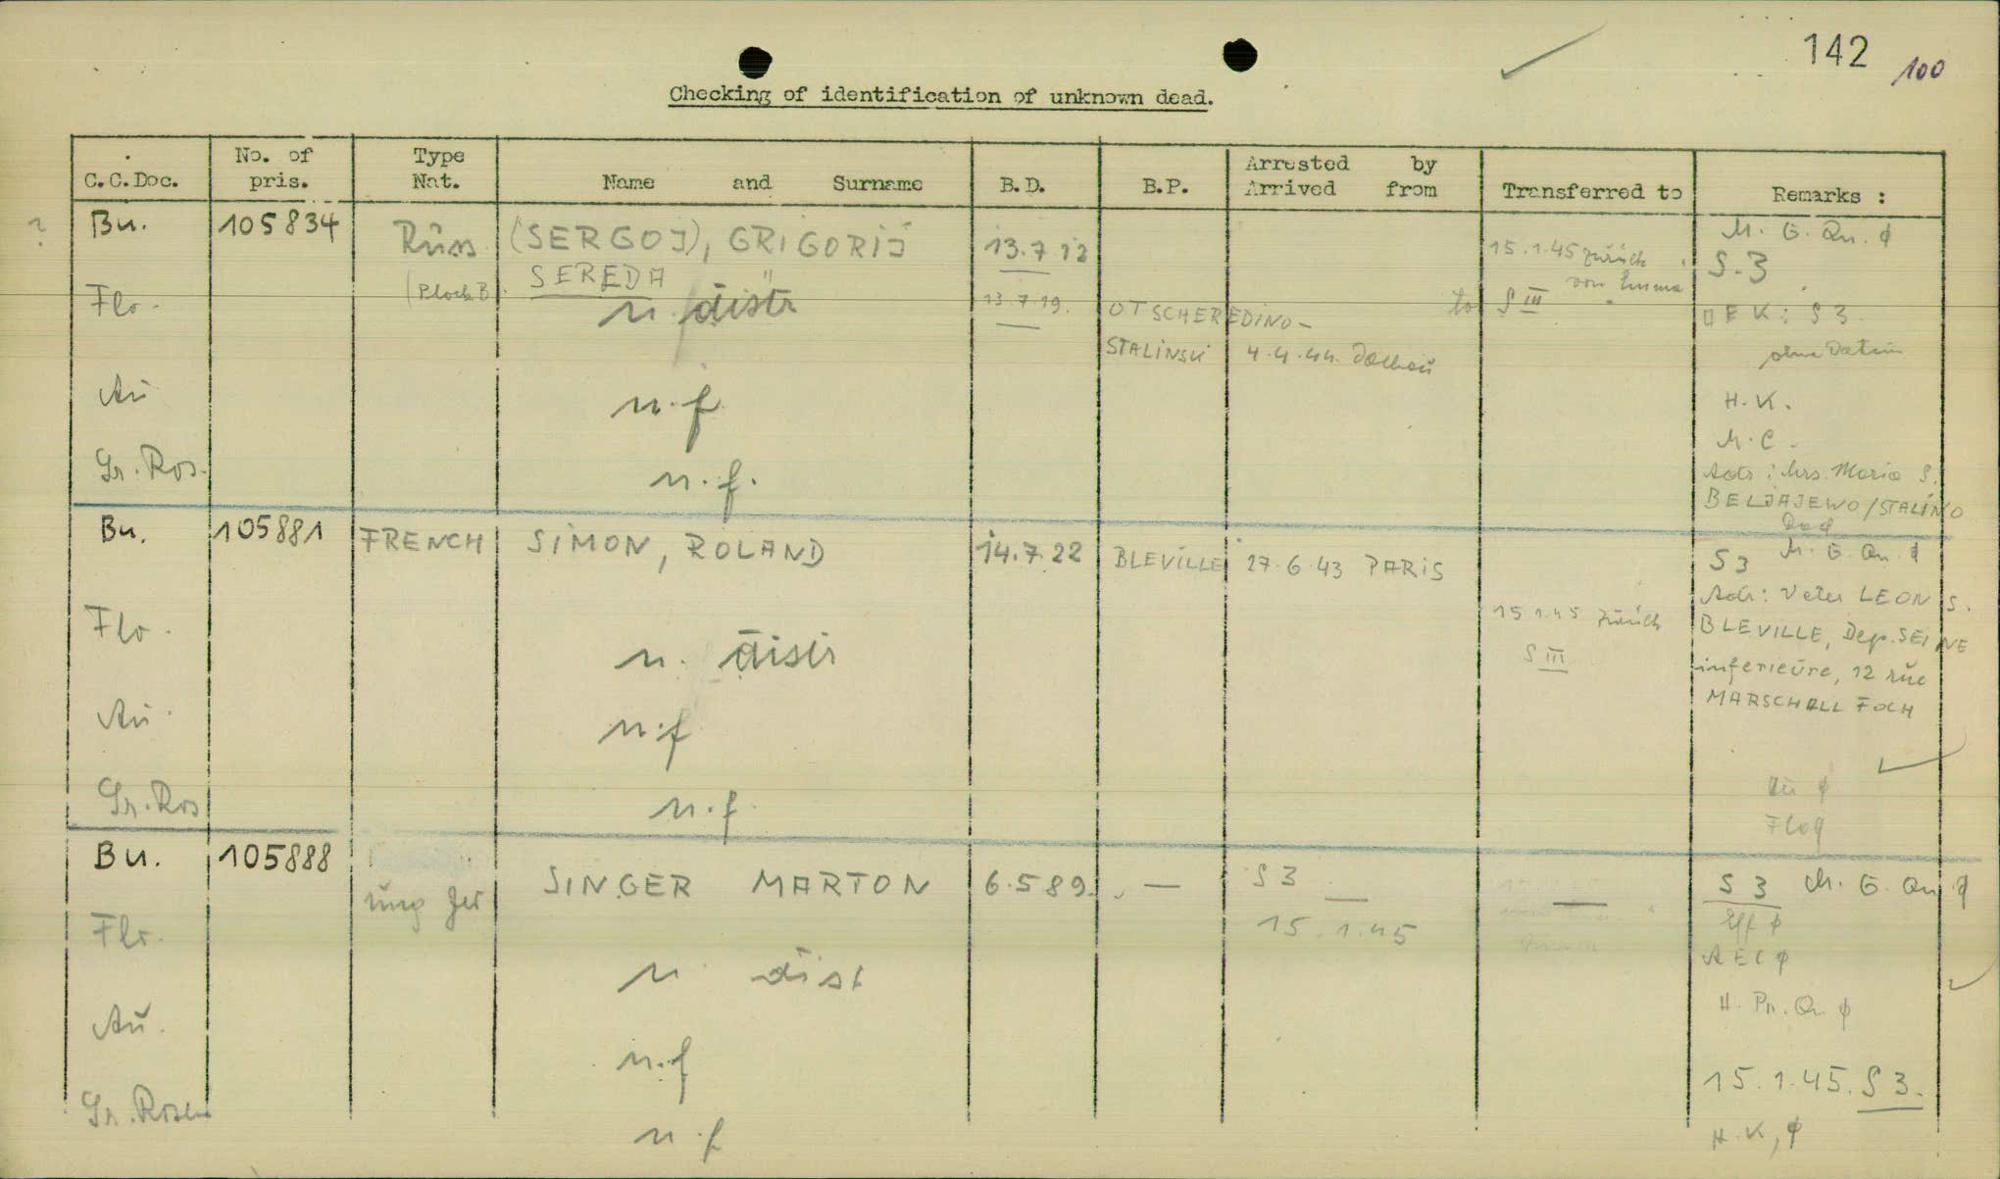 142
100
Checking of identification of unknown dead.
C.C.Doc. No. of pris. Type Nat. Name and Surname B.D. B.P. Arrested by Arrived from Transferred to Remarks :
? Bu. 105834 Russ (SERGOJ), GRIGORIJ 13.7.12 15.1.45 zurück M. G. Qu. ϕ
(Block B) SEREDA von S-3
Flo. n. 13.7.19. OTSCHEREDINO- to S III K: S3.
STALINSKI 4.4.44. Dachau ohne Datum
Au n.f H.K.
M.C.
Gr. Ros. n.f. Adr: Mrs. Maria S.
BELJAJEWO/STALINO
Bu. 105881 FRENCH SIMON, ROLAND 14.7.22 BLEVILLE 27.6.43 PARIS S3 M. G. Qu. ϕ
Flo. n. 15.1.45 zurück Adr: Vater LEON S.
S III BLEVILLE, Dep. SEINE
inferieure, 12 rue
Au. n.f MARSCHALL FOCH
Gr. Ros n.f. Au ϕ
Flo ϕ
Bu. 105888 ung Jew SINGER MARTON 6.5 89. — S3 — — S 3 M. G. Qu ϕ
Flo. n. 15.1.45 Eff ϕ
ϕ
Au. n.f H. Pn. Qu ϕ
15.1.45. S3.
Gr. Rosen n.f H.K, ϕ